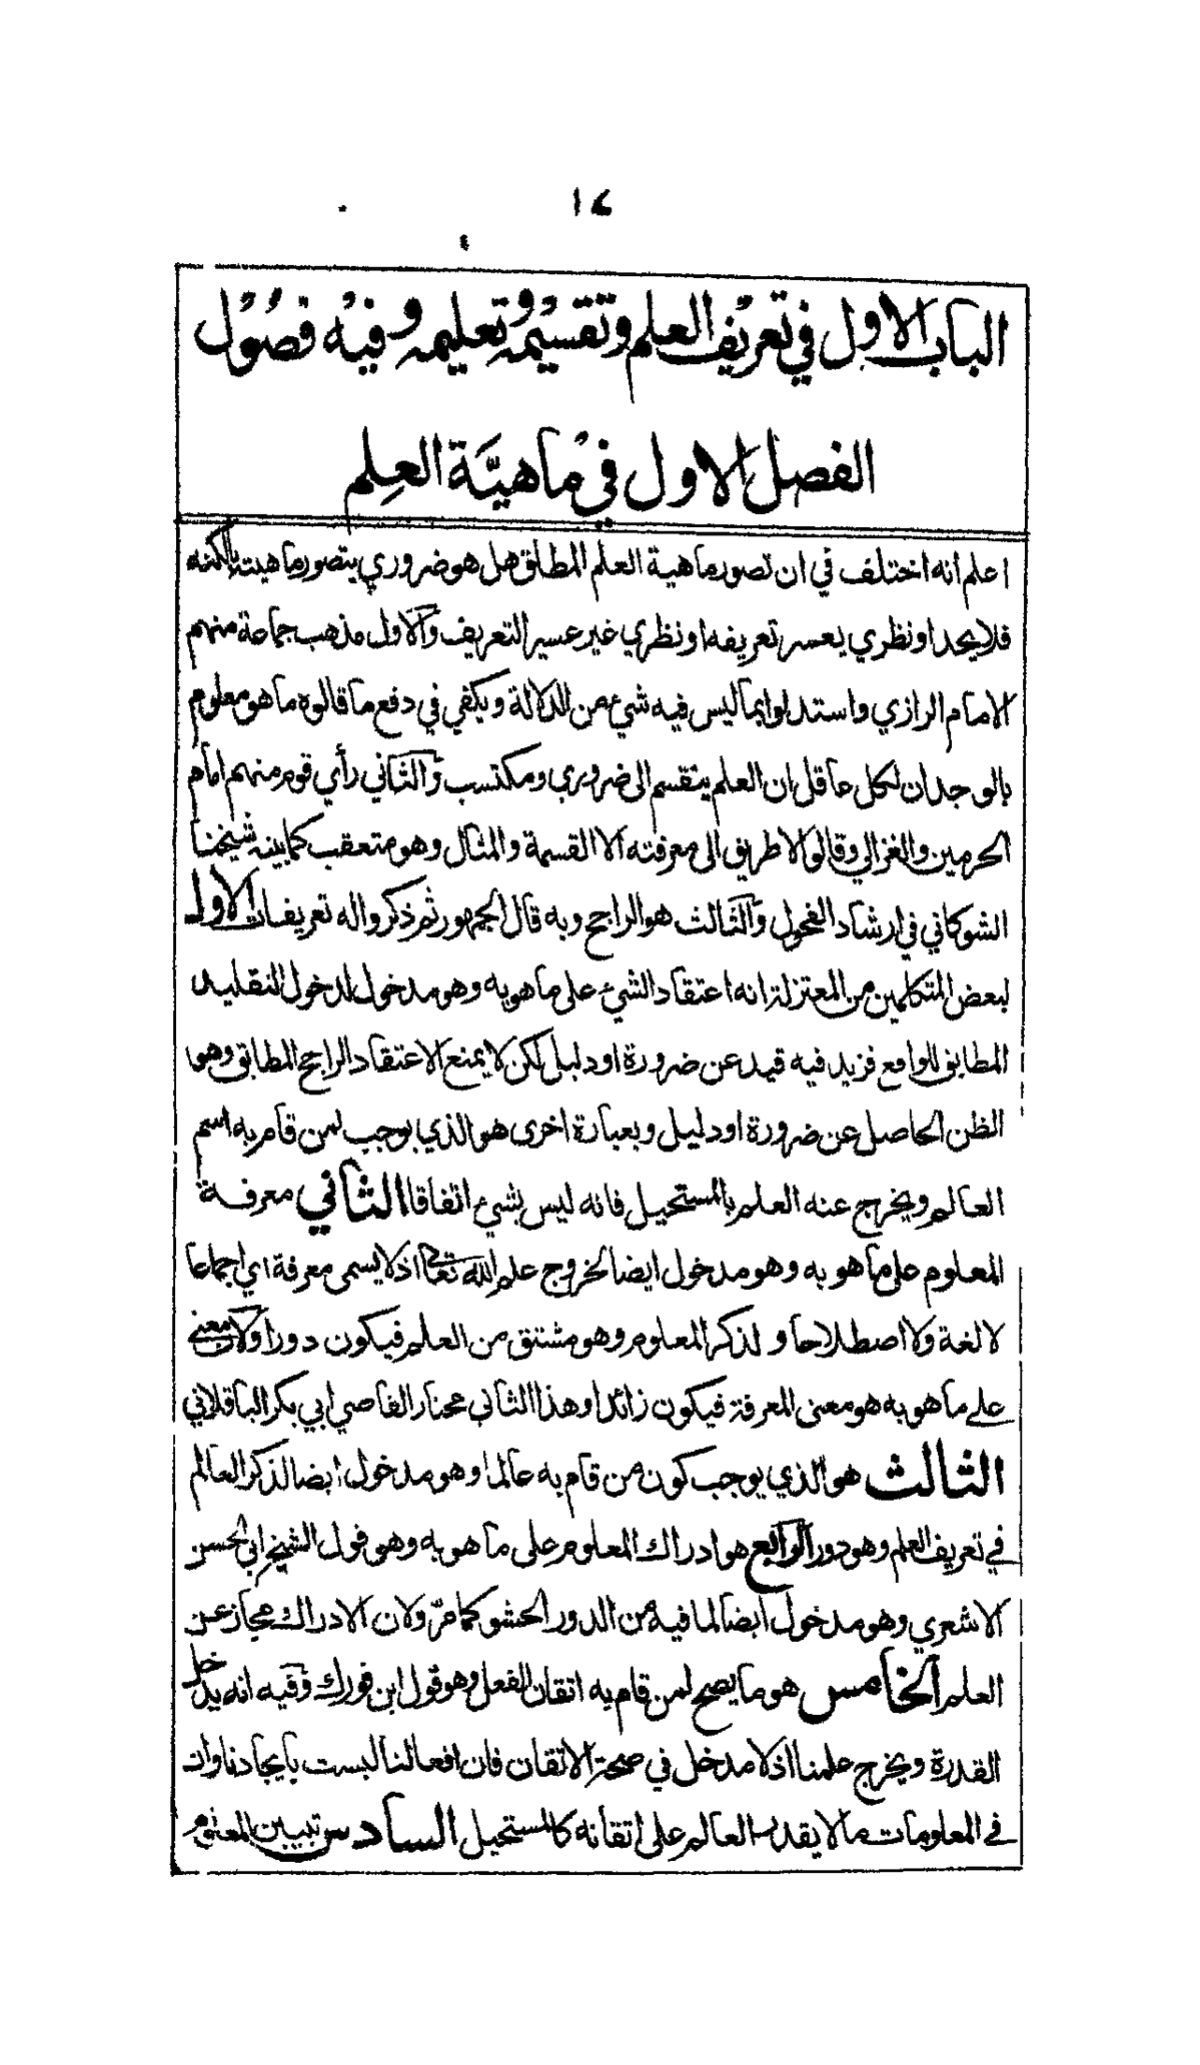 ١٤
الباب الاول في تعريف العلم وتقسيمه وتعليمه وفيه فصول
الفصل الاول في ماهيّة العلم
اعلم انه اختلف في ان تصور ماهية العلم المطلق هل هو ضروري يتصور ماهيته بالكنه
فلا يحد او نظري يعسر تعريفه او نظري غير عسير التعريف والاول مذهب جماعة منهم
الامام الرازي واستدلوا بما ليس فيه شيء من الدلالة ويكفي في دفع ما قالوه ما هو معلوم
بالوجدان لكل عاقل ان العلم ينقسم الى ضروري ومكتسب والثاني رأي قوم منهم امام
الحرمين والغزالي وقالوا لا طريق الى معرفته الا القسمة والمثال وهو متعقب كما بينه شيخنا
الشوكاني في ارشاد الفحول والثالث هو الراجح وبه قال الجمهور ثم ذكروا له تعريفات الاول
لبعض المتكلمين من المعتزلة انه اعتقاد الشيء على ما هو به وهو مدخول لدخول التقليد
المطابق للواقع فزيد فيه قيد عن ضرورة او دليل لكن لا يمنع الاعتقاد الراجح المطابق وهو
الظن الحاصل عن ضرورة او دليل وبعبارة اخرى هو الذي يوجب لمن قام به اسم
العالم ويخرج عنه العلم بالمستحيل فانه ليس بشيء اتفاقا الثاني معرفة
المعلوم على ما هو به وهو مدخول ايضا لخروج علم الله تعالى اذ لا يسمى معرفة اي اجماعا
لا لغة ولا اصطلاحا ولذكر المعلوم وهو مشتق من العلم فيكون دورا ولان معنى
على ما هو به هو معنى المعرفة فيكون زائدا وهذا الثاني مختار القاضي ابي بكر الباقلاني
الثالث هو الذي يوجب كون من قام به عالما وهو مدخول ايضا لذكر العالم
في تعريف العلم وهو دور الرابع هو ادراك المعلوم على ما هو به وهو قول الشيخ ابي الحسن
الاشعري وهو مدخول ايضا لما فيه من الدور الحشو كما مرّ ولان الادراك مجاز عن
العلم الخامس هو ما يصح لمن قام به اتقان الفعل وهو قول ابن فورك وفيه انه يدخل
القدرة ويخرج علمنا اذ لا مدخل في صحة الاتقان فان افعالنا ليست بايجادنا وان
في المعلومات ما لا يقدر العالم على اتقانه كالمستحيل السادس تبيين المعلوم